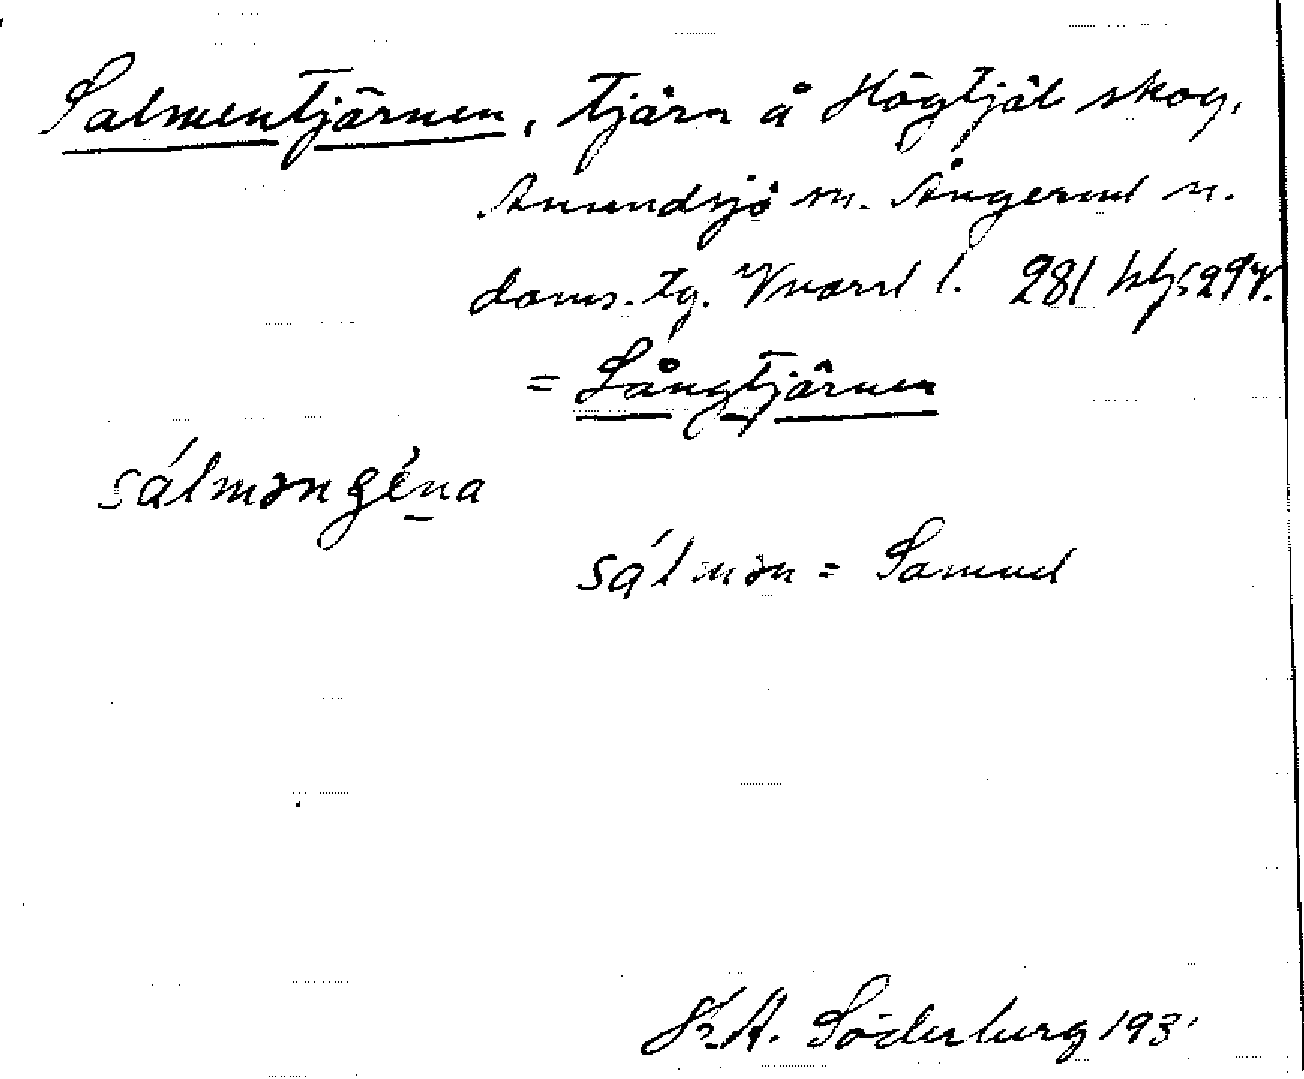 Salmentjärnen, tjärn å Högtjäl skog,
Anundsjö sn. Ångerml n.
doms. tg.
= Långtjärnen
sálmən géna
sálmən = Samuel
K.A. Söderberg 193